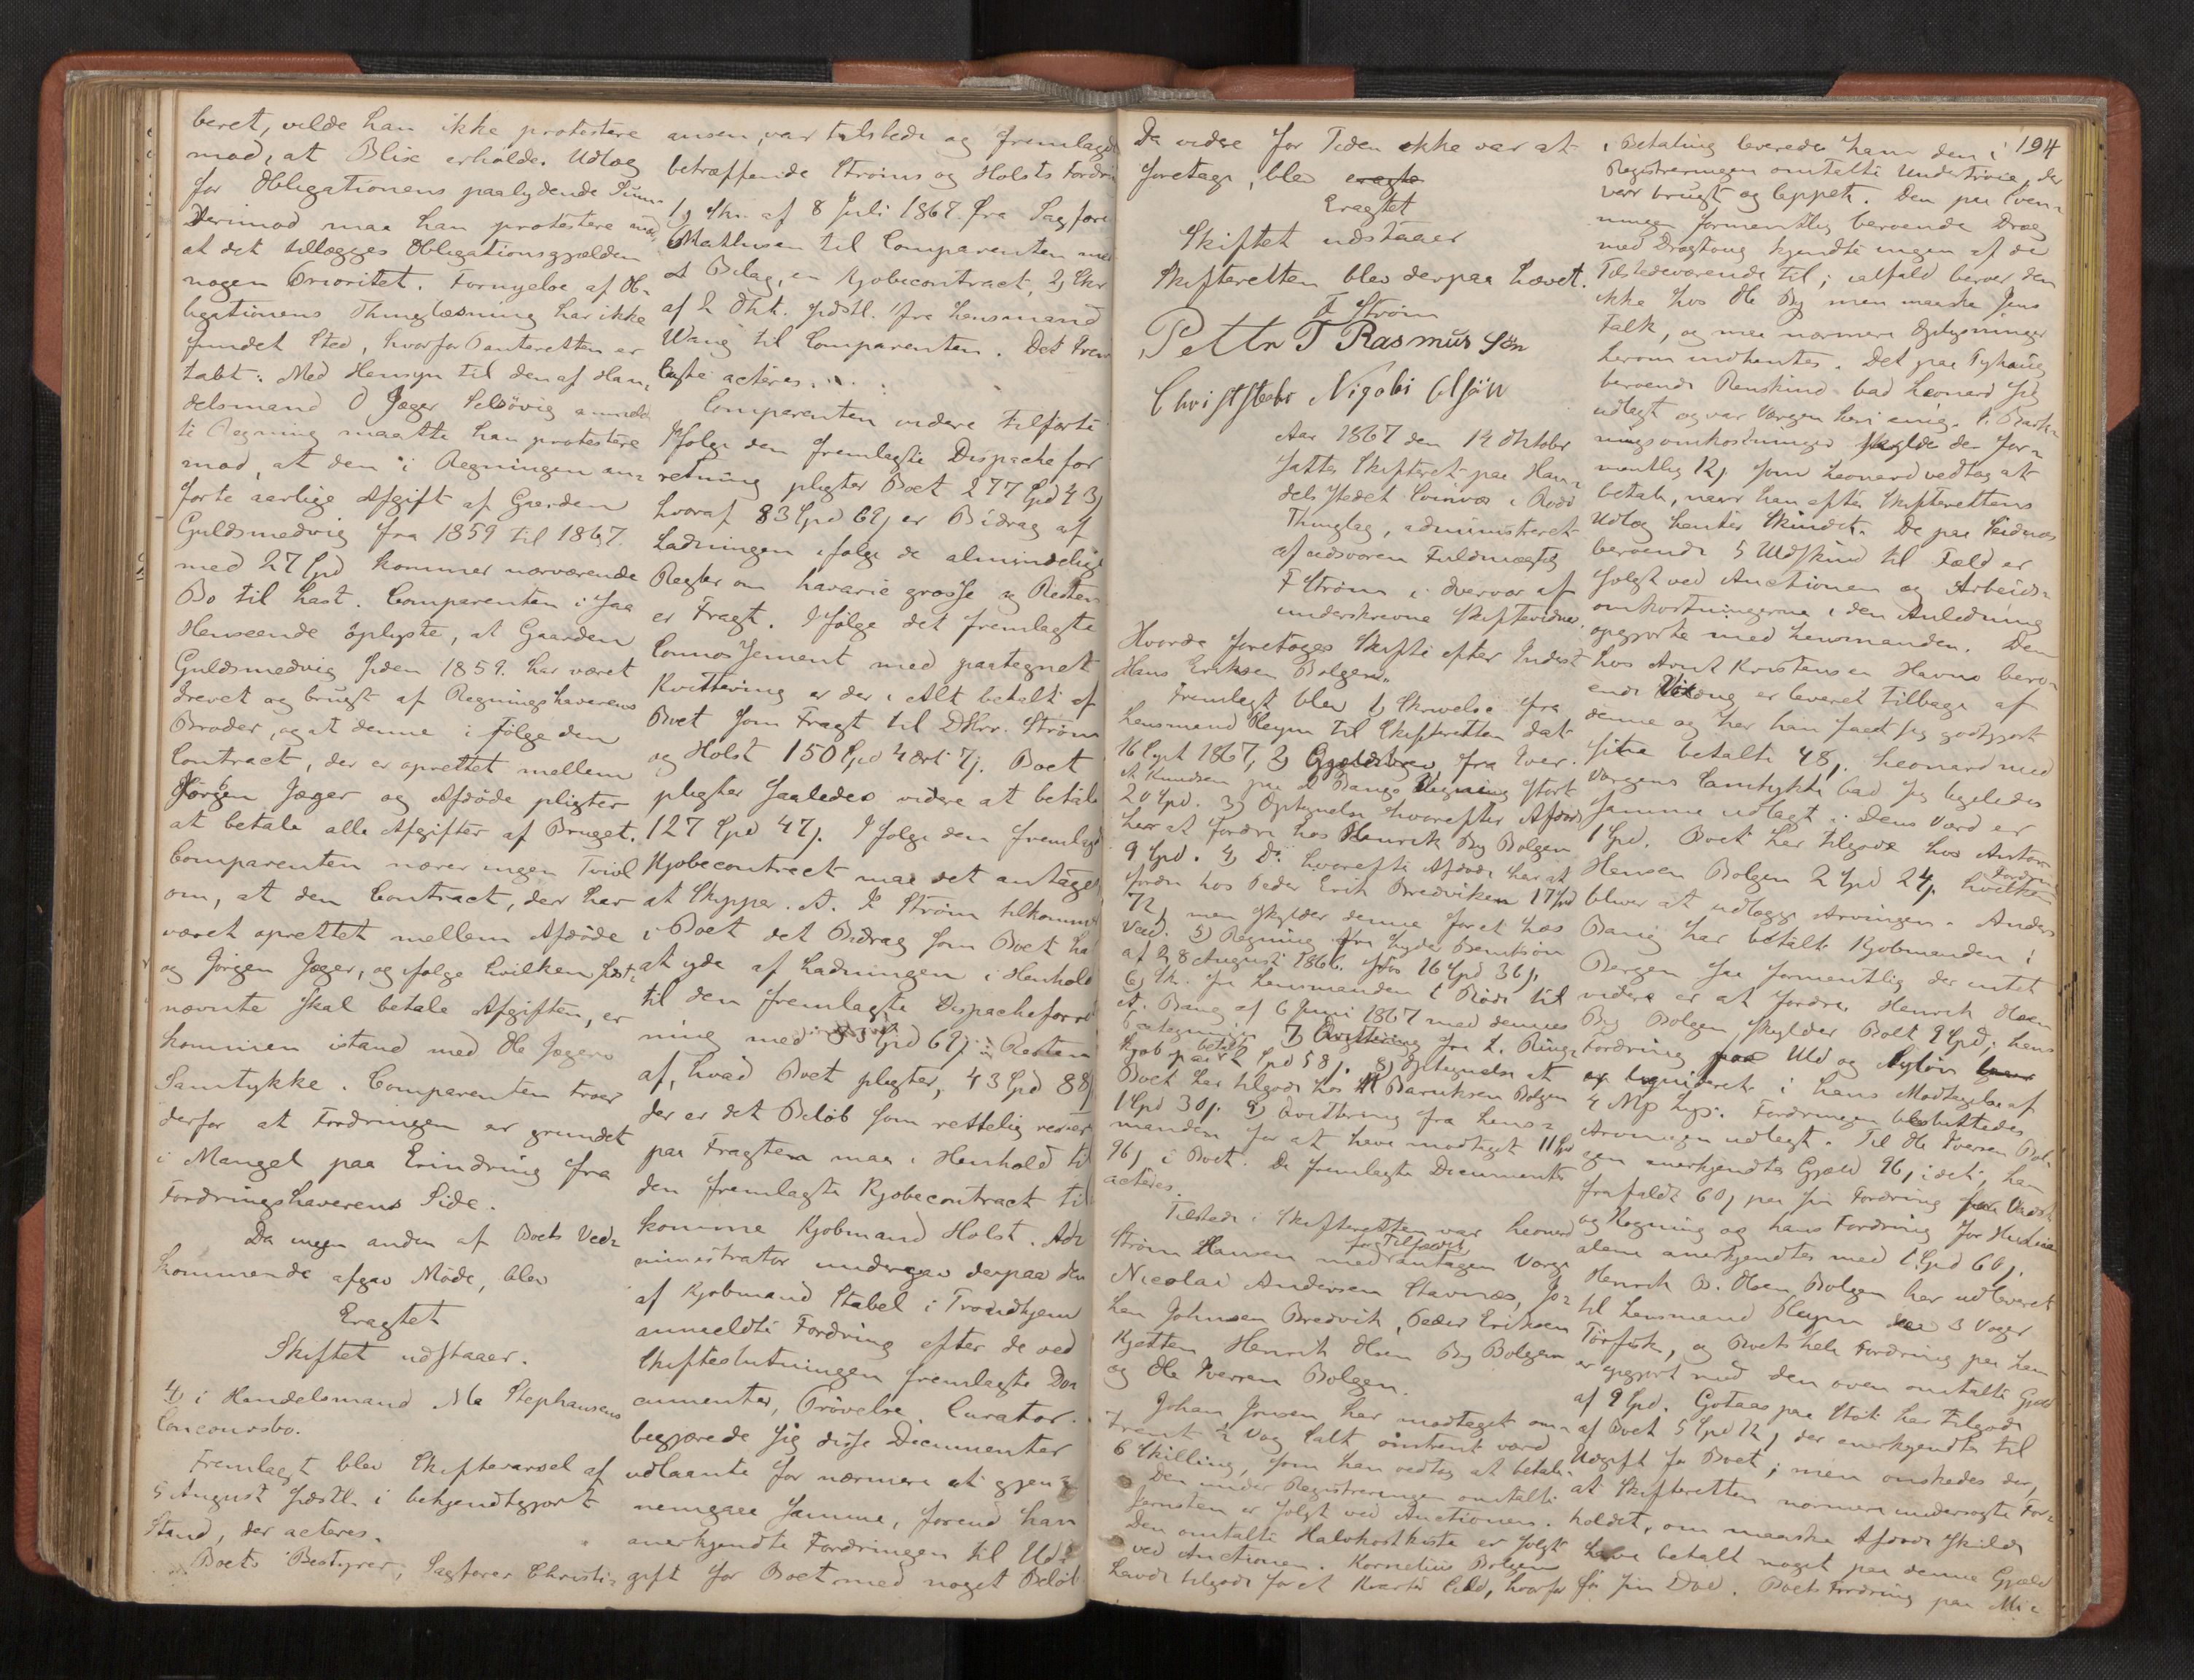 beret, vilde han ikke protestere
mod, at Blix erholde. Udlæg
for Obligationens paalydende Sum.
Derimod maa han protestere mod,
at det tillægges Obligationsgjælden
nogen Prioritet. Fornyelse af Ob-
ligationens Thinglæsning har ikke
fundet Sted, hvorfor Panteretten er
tabt. Med Hensyn til den af Han-
delsmand O Jæger Selsövig anmeld
te Regning maatte han protestere
mod, at den i Regningen an-
förte aarlige Afgift af Gaarden
Guldsmedvig fra 1859 til 1867.
med 27 Spd kommer nærværende
Bo til Last. Comparenten i saa
Henseende oplyste, at Gaarden
Guldsmedvig siden 1859. har været
drevet og brugt af Regningshaverens
Broder, og at denne i fölge den
Contract, der er oprettet mellem
Jörgen Jæger og Afdöde pligter
at betale alle Afgifter af Bruget.
Comparenten nærer ingen Tvivl
om, at den Contract, der har
været oprettet mellem Afdöde
og Jörgen Jæger, og ifölge hvilken först-
nævnte skal betale Afgiften, er
kommen istand med Ole Jægers
Samtykke. Comparenten troer
derfor at Fordringen er grundet
i Mangel paa Erindring fra
Fordringshaverens Side.
Da ingen anden af Boets Ved-
kommende afgav Möde, blev
Eragtet
Skiftet udstaaer.
4) i Handelsmand Ma Stephansens
Concoursbo.
Fremlagt blev Skiftevarsel af
5 August sidstl. i bekjendtgjort
Stand, der acteres.
Boets Bestyrer, Sagförer Christi-
ansen, var tilstede og fremlagde
betræffende Ströms og Holsts Fordrin
1) Skr. af 8 Juli 1867. fra Sagförer
Mathiesen til Comparenten med
et Bilag, en Kjöbecontract, 2) Skr
af 2 Okt. sidstl. fra Lensmand
Wang til Comparenten. Det frem
lagte acteres.
Comparenten videre tilförte
Ifölge den fremlagte Dispachefor
retning pligter Boet 277 Spd 43)
hvoraf 83 Spd 69) er Bidrag af
Ladningen ifölge de almindelige
Regler om havarie grosse og Resten
er Fragt. Ifölge det fremlagte
Connossement med paategnet
Kvittering er der i Alt betalt af
Boet som Fragt til DHrr. Ström
og Holst 150 Spd 4 ort 7). Boet
pligter saaledes videre at betale
127 Spd 47). I fölge den fremlagte
Kjöbecontract maa det antages
at Skipper A. Ström tilkommer
i Boet det Bidrag som Boet har
at yde af Ladningen i Henhold
til den fremlagte Dispacheforret
ning med 83 Spd 69) Resten
af, hvad Boet pligter, 43 Spd 88)
der er det Belöb som rettelig resterer
paa Fragten maa i Henhold til
den fremlagte Kjöbecontract til
komme Kjöbmand Holst. Ad-
ministrator undergav derpaa den
af Kjöbmand Stabel i Trondhjem
anmeldte Fordring efter de ved
Skifteslutningen fremlagte Do-
cumenter, Prövelse. Curator
begjærede sig disse Documenter
udlaante for nærmere at gjen-
nemgaa samme, forend han
anerkjendte Fordringen til Ud-
gift for Boet med noget Belöb
Da videre for Tiden ikke var at
foretage, blev eragte
Eragtet
Skiftet udstaaer
Skifteretten blev derpaa hævet.
F Ström
Petter T Rasmus Sön
Christsteber Nigolai Olsön
194
Aar 1867 den 14 Oktober
sattes Skifteret paa Han-
delsstedet Svinvær i Rödö
Thinglag, administreret
af edsvoren Fuldmægtig
F Ström i Overvær af
underskrevne Skiftevidner.
Hvorda foretoges Skifte efter Inderst
Hans Eriksen Bolgen.
Fremlagt blev 1) Skrivelse fra
Lensmand Pleym til Skifteretten dat
16 Sept 1867, 2) Gjeldsbrev fra Iver
A Knudsen paa A Bangs Regning stort
20 Spd. 3) Optegnelse hvorefter Afdöde
har at fordre hos Henrik By Bolgen
9 Spd. 4) Do. hvorefter Afdöde har at
fordre hos Peder Erik Bredviken 17 Spd
72) men skylder denne for et Laas
Ved. 5) Regning fra Lyder Bentson
af 28 August 1866. stor 16 Spd 36),
6) Skr. fra Lensmanden i Rödö til
A. Bang af 6 Juni 1867 med dennes
Paategning 7) Qvittering fra L. Ring-
kjöb paa betalt 2 Spd 58). 8) Optegnelse at
Boet har tilgode hos Baruksen Bolgen
1 Spd 30). 9) Qvittering fra Lens-
manden for at have modtaget 11 Spd
96) i Boet. De fremlagte Documenter
acteres.
Tilstede i Skifteretten var Leonard
Ström Hansen med for Tilfældet antagen Værge
Nicolai Andersen Stavnæs, Jo-
han Johnsen Bredvik, Peder Eriksen
Kjetten Henrik Olsen By Bolgen
og Ole Iversen Bolgen.
Johan Jonsen har modtaget om-
trent ½ Vog Salt omtrent værd
6 Skilling, som han vedtog at betale.
Den under Registreringen omtalte
Jernsten er solgt ved Auctionen.
Den omtalte Halvkortkiste er solgt
ved Auctionen. Kornelius Bolgen
havde tilgode for et Kvarter Sild, hvorfor
i Betaling leveredes ham den i
Registreringen omtalte Undertröie, der
var brugt og lappet. Den paa Sven-
ningen formentlig beroende Dræg
med Drægtoug kjendte ingen af de
Tilstedeværende til; ialfald beroer den
ikke hos Ole By men maaske Jens
Falk, og maa nærmere Oplysninger
herom indhentes. Det paa Tyhaug
beroende Renskind bad Leonard sig
udlagt og var Værgen heri enig. I Bark-
ningsomkostninger skylde der for-
mentlig 12) som Leonard vedtog at
betale, naar han efter Skifterettens
Udlæg henter Skindet. De paa Seidnæs
beroende 5 Uldskind til Fæld er
solgt ved Auctionen og Arbeids-
omkostningerne i den Anledning
opgjorte med Lensmanden. Den
hos Arnt Kristensen Havnö bero-
ende er leveret tilbage af
denne og har han faaet sig godtgjort
sine betalte 48). Leonard med
Værgens Samtykke bad sig ligeledes
samme udlagt. Dens Værd er
1 Spd. Boet har tilgode hos Anton
Hansen Bolgen 2 Spd 24) hvilken Fordring
bliver at udlægge Arvingen. Anders
Bang har betalt Kjöbmanden i
Bergen saa formentlig der intet
videre er at fordre. Henrik Olsen
By Bolgen skylder Boet 9 Spd; hans
Fordring paa Uld og Ryslön
er liquideret i hans Modtagelse af
4 Mp Lys. Fordringen besluttedes
Arvingen udlagt. Til Ole Iversen Bol-
gen anerkjendtes Gjæld 96) idet, han
frafaldt 60) paa sin Fordring for Vadsk
og Rögning og hans Fordring for Husleie
alene anerkjendtes med 1 Spd 60).
Henrik B. Olsen Bolgen har udleveret
til Lensmand Pleym 3 Voger
Törfisk, og Boets hele Fordring paa ham
er opgjort med den oven omtalte Gjæld
af 9 Spd. Gotaas paa Stöt har tilgode
af Boet 5 Spd 12) der anerkjendtes til
Udgift for Boet; men önskedes der,
at Skifteretten nærmere undersögte For-
holdet, om maaske Afdöde skulde
have betalt noget paa denne Gjæld
för sin Död. Boets Fordring paa Mi-